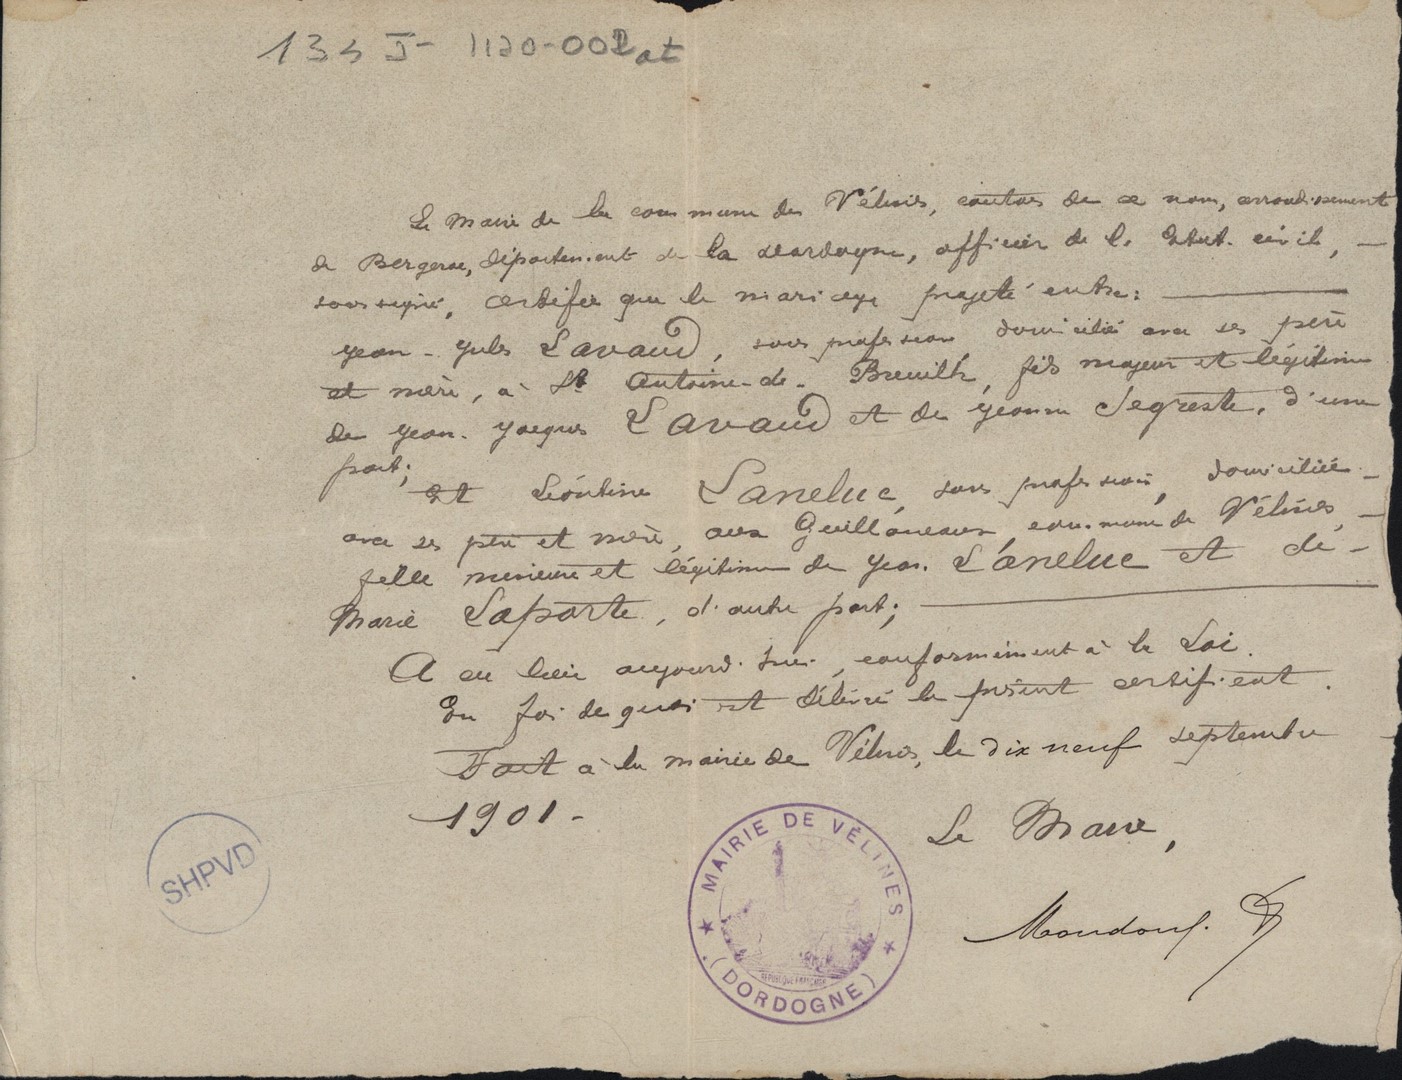 134 J - 1120-002 at
Le Maire de la commune de Vélines, canton de ce nom, arrondissement
de Bergerac, département de la Dordogne, officier de l'Etat-civil,
soussigné, certifie que le mariage projeté entre :
Jean-Jules Lavaud, sans profession, domicilié avec ses père
et mère, à St Antoine-de-Breuilh, fils majeur et légitime
de Jean-Jacques Lavaud et de Jeanne Segreste, d'une
part ;
Et Léontine Laneluc, sans profession, domiciliée
avec ses père et mère, aux Guillaneaux, commune de Vélines,
fille mineure et légitime de Jean Laneluc et de
Marie Laporte, d'autre part ;
A eu lieu aujourd'hui, conformément à la Loi.
En foi de quoi est délivré le présent certificat.
Fait à la mairie de Vélines, le dix neuf septembre
1901 -
Le Maire,
MAIRIE DE VÉLINES
(DORDOGNE)
RÉPUBLIQUE FRANÇAISE
SHPVD